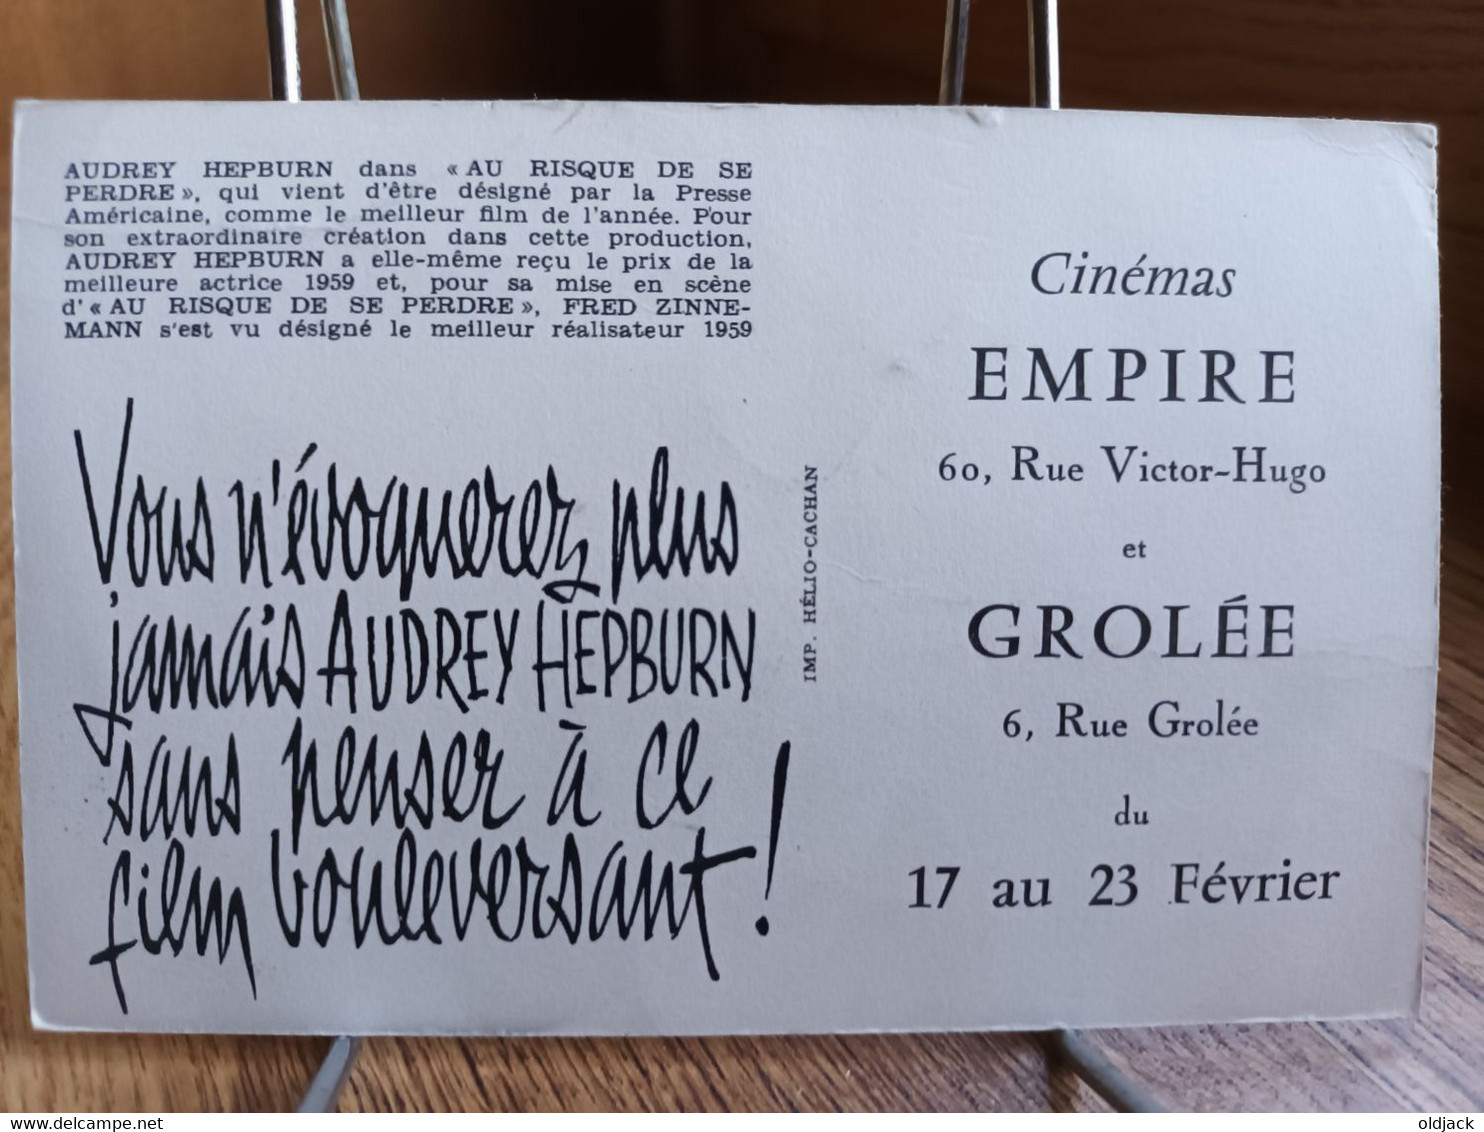 AUDREY HEPBURN dans « AU RISQUE DE SE
PERDRE », qui vient d'être désigné par la Presse
Américaine, comme le meilleur film de l'année. Pour
son extraordinaire création dans cette production,
AUDREY HEPBURN a elle-même reçu le prix de la
meilleure actrice 1959 et, pour sa mise en scène
d'« AU RISQUE DE SE PERDRE », FRED ZINNE-
MANN s'est vu désigné le meilleur réalisateur 1959
Vous n'évoquerez plus
jamais AUDREY HEPBURN
sans penser à ce
film bouleversant !
IMP. HÉLIO-CACHAN
Cinémas
EMPIRE
60, Rue Victor-Hugo
et
GROLÉE
6, Rue Grolée
du
17 au 23 Février
delcampe.net
oldjack